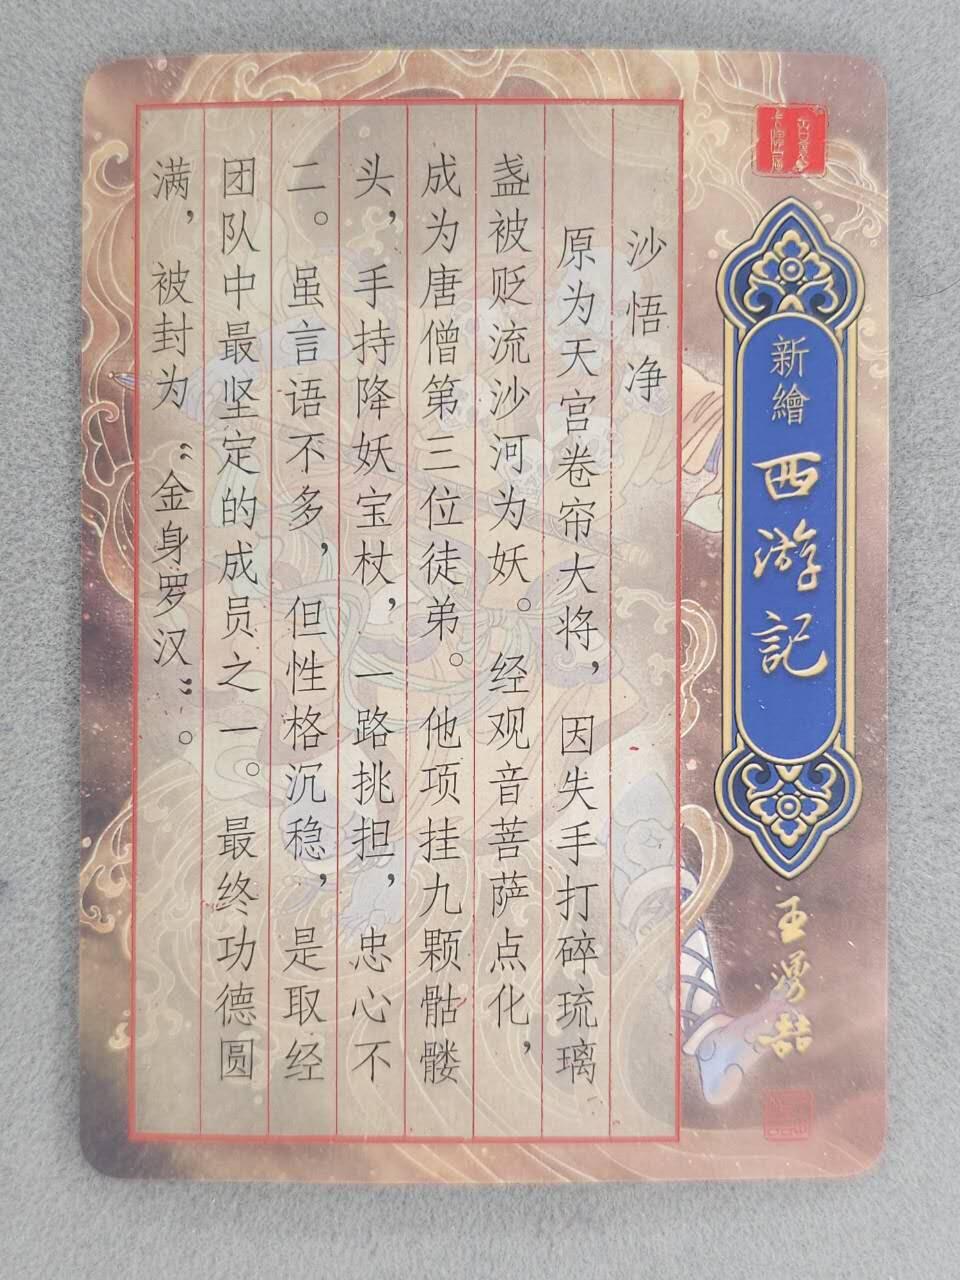 新繪
西游記
王湧喆
沙悟净
原为天宫卷帘大将，因失手打碎琉璃
盏被贬流沙河为妖。经观音菩萨点化，
成为唐僧第三位徒弟。他项挂九颗骷髅
头，手持降妖宝杖，一路挑担，忠心不
二。虽言语不多，但性格沉稳，是取经
团队中最坚定的成员之一。最终功德圆
满，被封为“金身罗汉”。